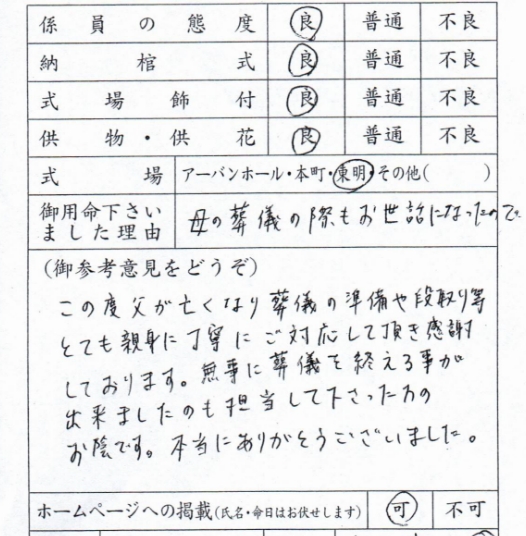 係員の態度 良 普通 不良
納棺式 良 普通 不良
式場飾付 良 普通 不良
供物・供花 良 普通 不良
式場 アーバンホール・本町・東明・その他( )
御用命下さい
ました理由
母の葬儀の際もお世話になったので
(御参考意見をどうぞ)
この度父が亡くなり葬儀の準備や段取り等
とても親身に丁寧にご対応して頂き感謝
しております。無事に葬儀を終える事が
出来ましたのも担当して下さった方の
お陰です。本当にありがとうございました。
ホームページへの掲載(氏名・命日はお伏せします) 可 不可